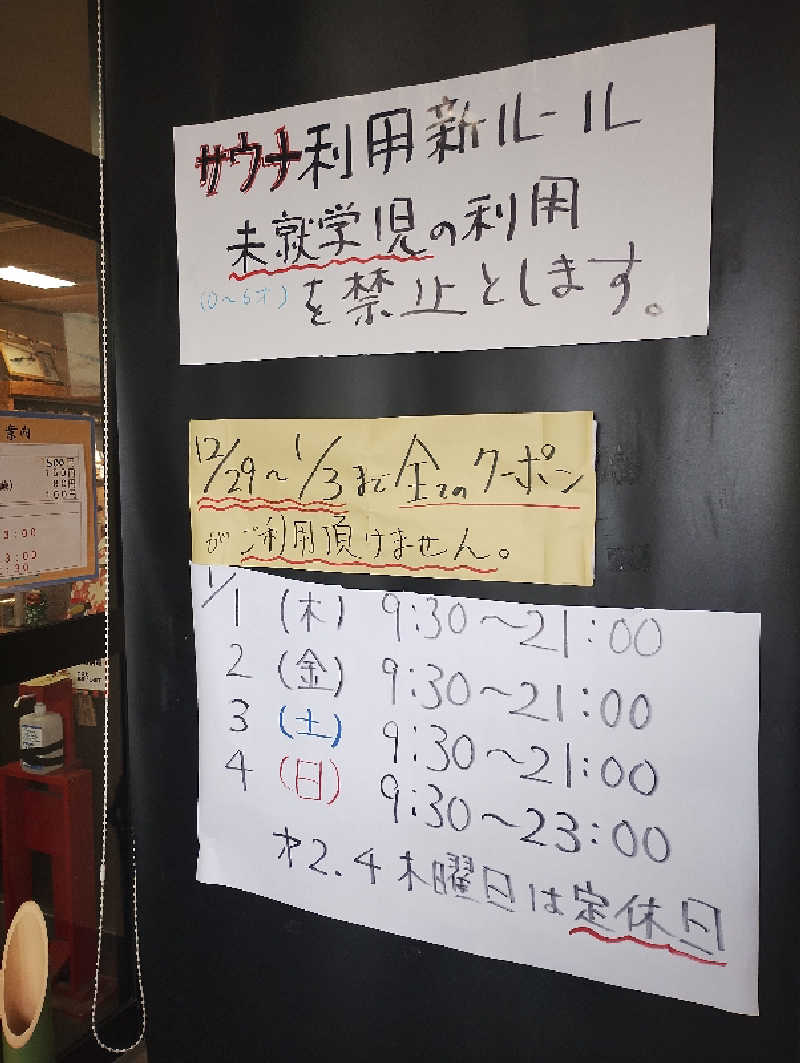 サウナ利用新ルール
未就学児の利用
(0〜6才) を禁止とします。
12/29〜1/3まで全てのクーポン
がご利用頂けません。
1/1 (木) 9:30〜21:00
2 (金) 9:30〜21:00
3 (土) 9:30〜21:00
4 (日) 9:30〜23:00
才2.4木曜日は定休日
案内
500円
150円
80円
100円